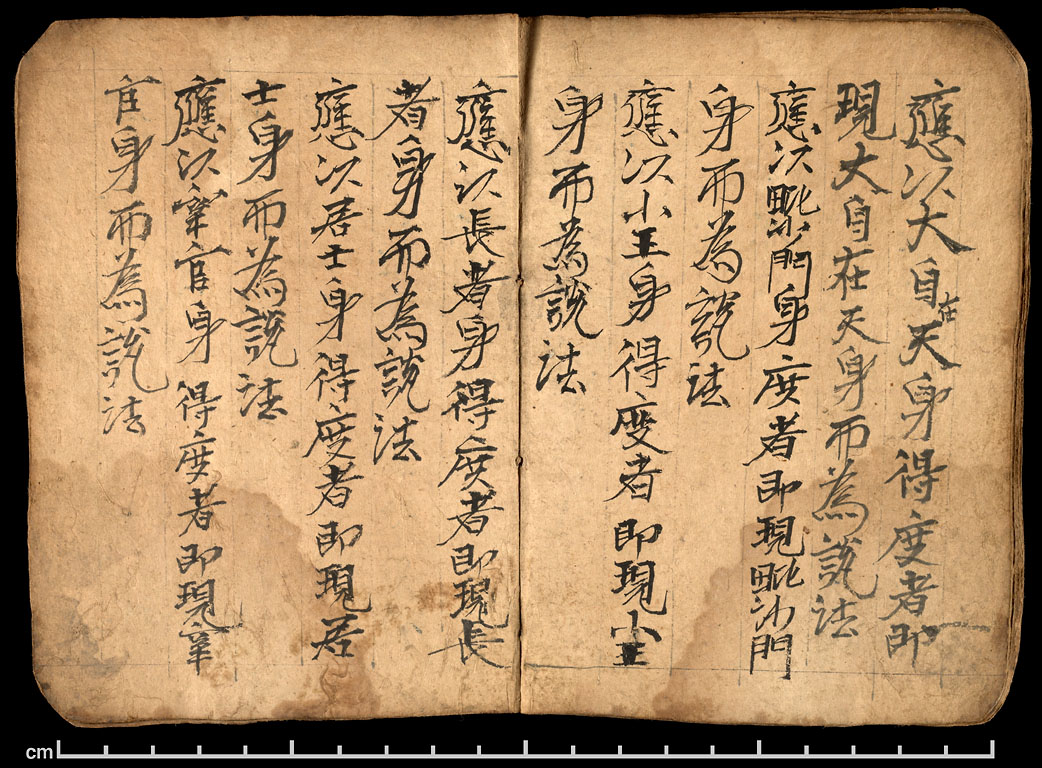 應以大自在天身得度者即
現大自在天身而為說法
應以毗沙門身度者即現毗沙門
身而為說法
應以小王身得度者即現小王
身而為說法
應以長者身得度者即現長
者身而為說法
應以居士身得度者即現居
士身而為說法
應以宰官身得度者即現宰
官身而為說法
cm